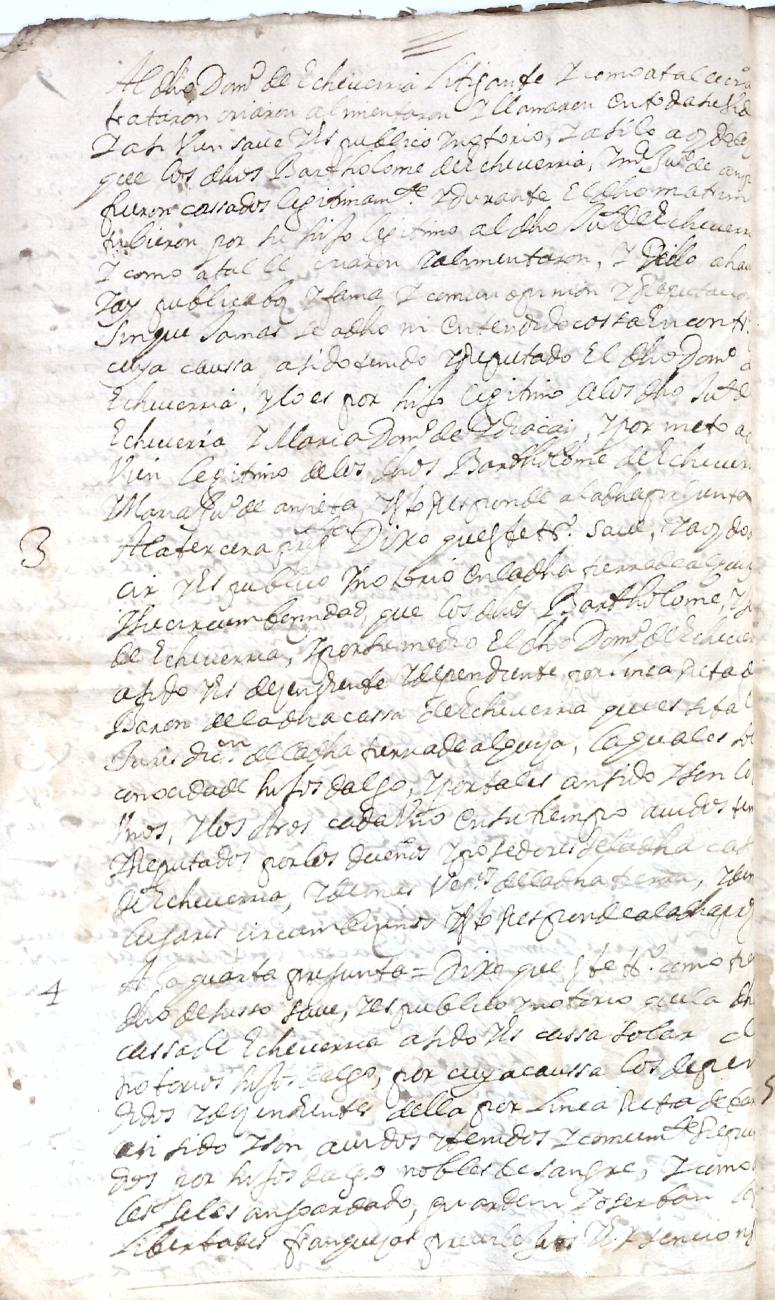 Al dho Dom.º de Echeverria Litigante Y como a tal le cria
trataron criaron alimentaron Y llamaron
Y assi vien save Yes publico Ynotorio, Y assi lo a oydo
que los dhos Bartholome de Echeverria, Y M.ª Ju.ª de
fueron cassados legitimam.te Y durante El dho matrim
tubieron por su hijo legitimo al dho Ju.º de Echeverr
Y como a tal le criaron Yalimentaron, Y dello a hau
Yay publicaboz Yfama Y comun opinion Y Reputacio
Sin que Jamas se a dho ni entendido cossa En contr
cuya caussa a sido tenido YReputado El dho Dom.º d
Echeverria, Ylo es por hijo legitimo de los dho Ju.º de
Echeverria Y Maria Dom.ª de Ydiacaiz, Y por nieto a
vien legitimo de los dhos Bartholome de Echeverr
Maria Ju.ª de arrieta, Yesto Responde a la dha pregunta
3 A la tercera preg.ta Dixo que este t.º save, Ya oydo de
cir Yes publico Ynotorio en la dha tierra de alquiz
Ysu circumbecindad, que los dhos Bartholome, Y Ju
de Echeverria, Ypor su medio El dho Dom.º de Echever
a sido Yes dezendiente Ydependiente por linea Reta de
Baron de la dha cassa de Echeverria que es sita
Jurisdic.on de la dha tierra de alquiza, la qual es so
conocida de hijos dalgo, Y por tales an sido Yson los
Unos, Ylos otros cada Uno en su tiempo auidos ten
YReputados por los dueños Yposedores de la dha cas
de Echeverria, Ydemas Vez.os de la dha tierra, Yde
lugares circumbecinos Yesto Responde a la dha preg
4 A la quarta pregunta = Dixo que este t.º como tie
dho de susso save, Yes publico Ynotorio que la dh
cassa de Echeverria a sido Yes cassa Solar d
notorios hijos dalgo, por cuya caussa los depen
didos Ydezendientes della por linea Reta de ba
an sido Yson auidos Ytenidos Y comunm.te Reput
dos por hijos dalgo nobles de sangre, Y como
les se les an goardado, guardan Yoserban las
libertades franquezas preuilejios Y Exsencion
5